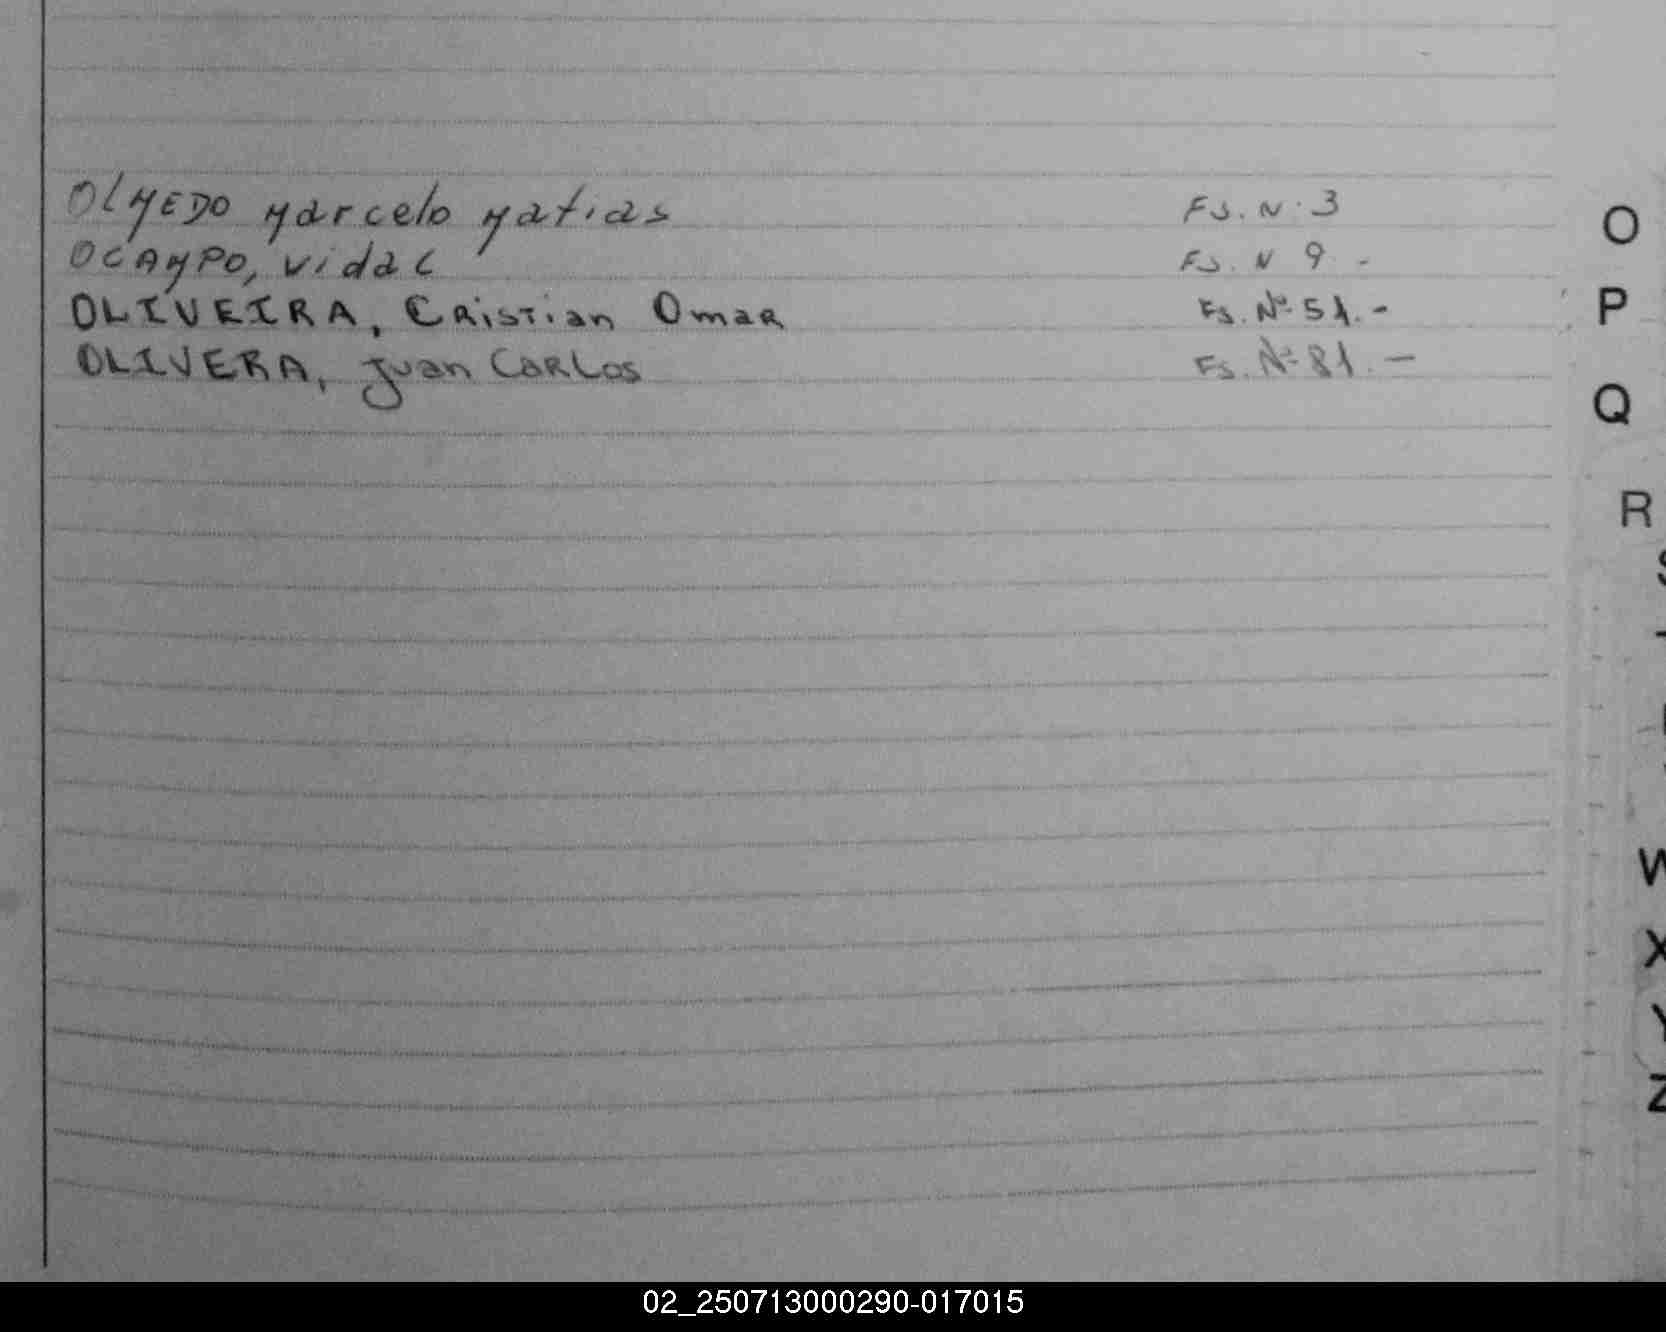 OLMEDO Marcelo Matias Fs. N. 3
OCAMPO, Vidal Fs. N 9 -
OLIVEIRA, Cristian Omar Fs. Nº 51.-
OLIVERA, Juan Carlos Fs. Nº 81.-
O
P
Q
R
S
W
X
Y
Z
02_250713000290-017015